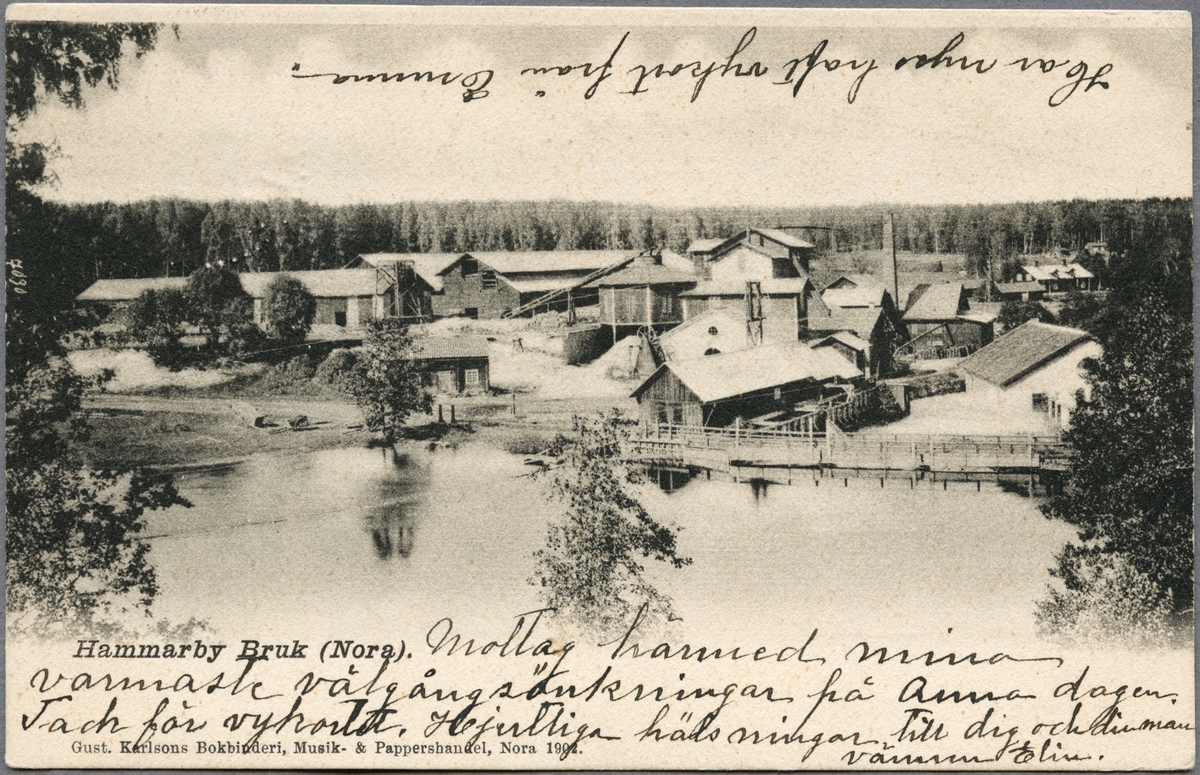 Har nyss haft vykort från Emma.
Hammarby Bruk (Nora). Mottag härmed mina
varmaste välgångsönkningar på Anna dagen.
Tack för vykortet. Hjertliga hälsningar till dig och din man
Gust. Karlsons Bokbinderi, Musik- & Pappershandel, Nora 1902.
vännen Elin.